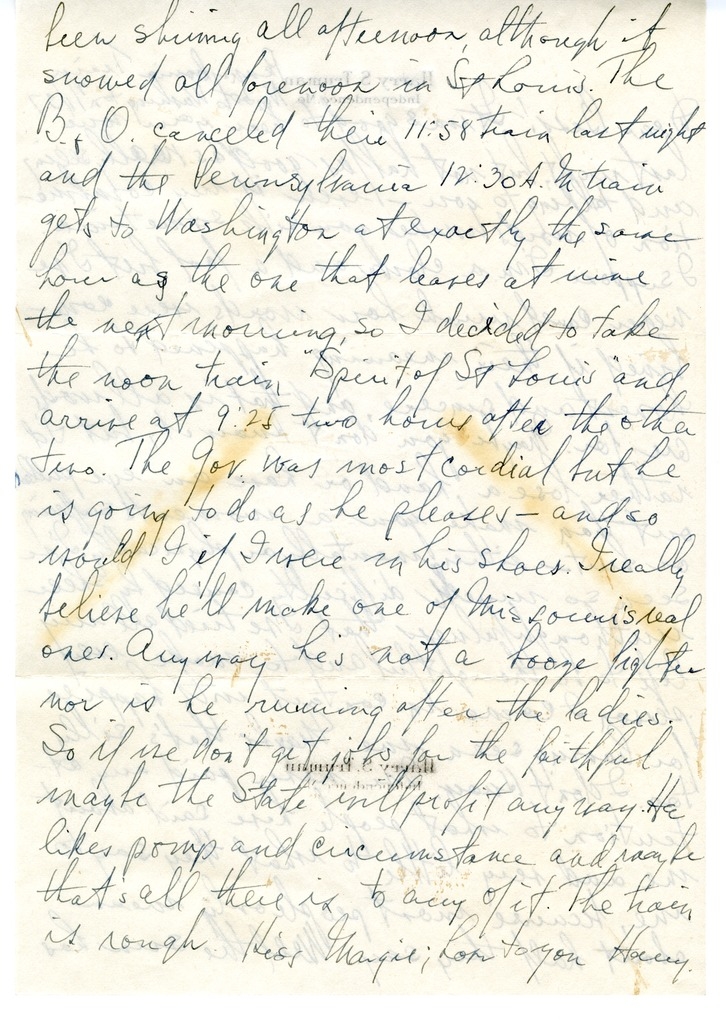 been shining all afternoon, although it
snowed all forenoon in St Louis. The
B. & O. canceled their 11:58 train last night
and the Pennsylvania 12:30 A.M train
gets to Washington at exactly the same
hour as the one that leaves at nine
the next morning, so I decided to take
the noon train "Spirit of St Louis" and
arrive at 9:25 two hours after the other
two. The Gov. was most cordial but he
is going to do as he pleases - and so
would I if I were in his shoes. I really
believe he'll make one of Missouri's real
ones. Anyway he's not a booze fighter
nor is he running after the ladies.
So if we don't get jobs for the faithful
maybe the State will profit anyway. He
likes pomp and circumstance and maybe
that's all there is to any of it. The train
is rough. Kiss Margie; love to you Harry.